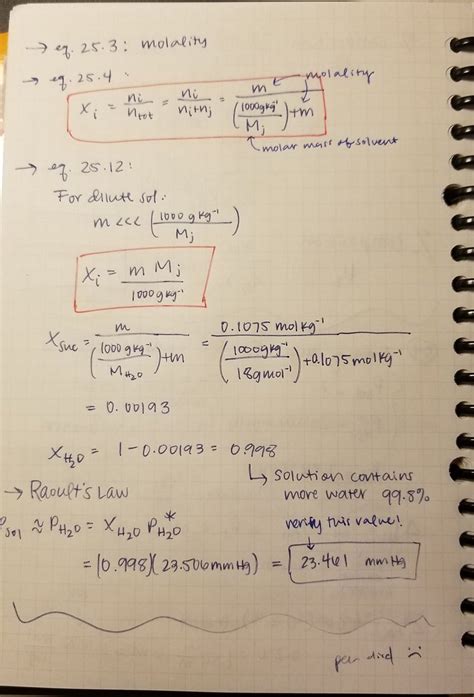 → eq. 25.3: molality
→ eq. 25.4:
m ← molality
X_i = n_i/n_tot = n_i/(n_i+n_j) = m/((1000gkg⁻¹/M_j)+m)
molar mass of solvent
→ eq. 25.12:
For dilute sol:
m <<< (1000 g kg⁻¹/M_j)
X_i = m M_j/1000gkg⁻¹
X_suc = m/((1000 gkg⁻¹/M_H₂O)+m) = 0.1075 molkg⁻¹/((1000gkg⁻¹/18gmol⁻¹)+0.1075molkg⁻¹)
= 0.00193
X_H₂O = 1-0.00193 = 0.998
↳ solution contains
more water 99.8%
→ Raoult's Law
verify this value!
P_sol ≈ P_H₂O = X_H₂O P*_H₂O
= (0.998)(23.506mmHg) = 23.461 mmHg
pen died :(